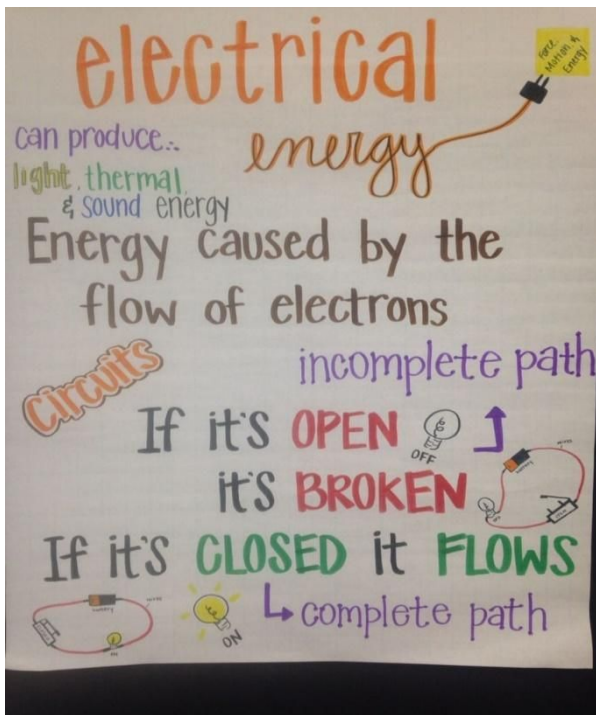 electrical
energy
Force,
Motion, &
Energy
can produce...
light, thermal,
& sound energy
Energy caused by the
flow of electrons
Circuits
incomplete path
If it's OPEN
OFF
it's BROKEN
battery
If it's CLOSED it FLOWS
battery
ON
complete path